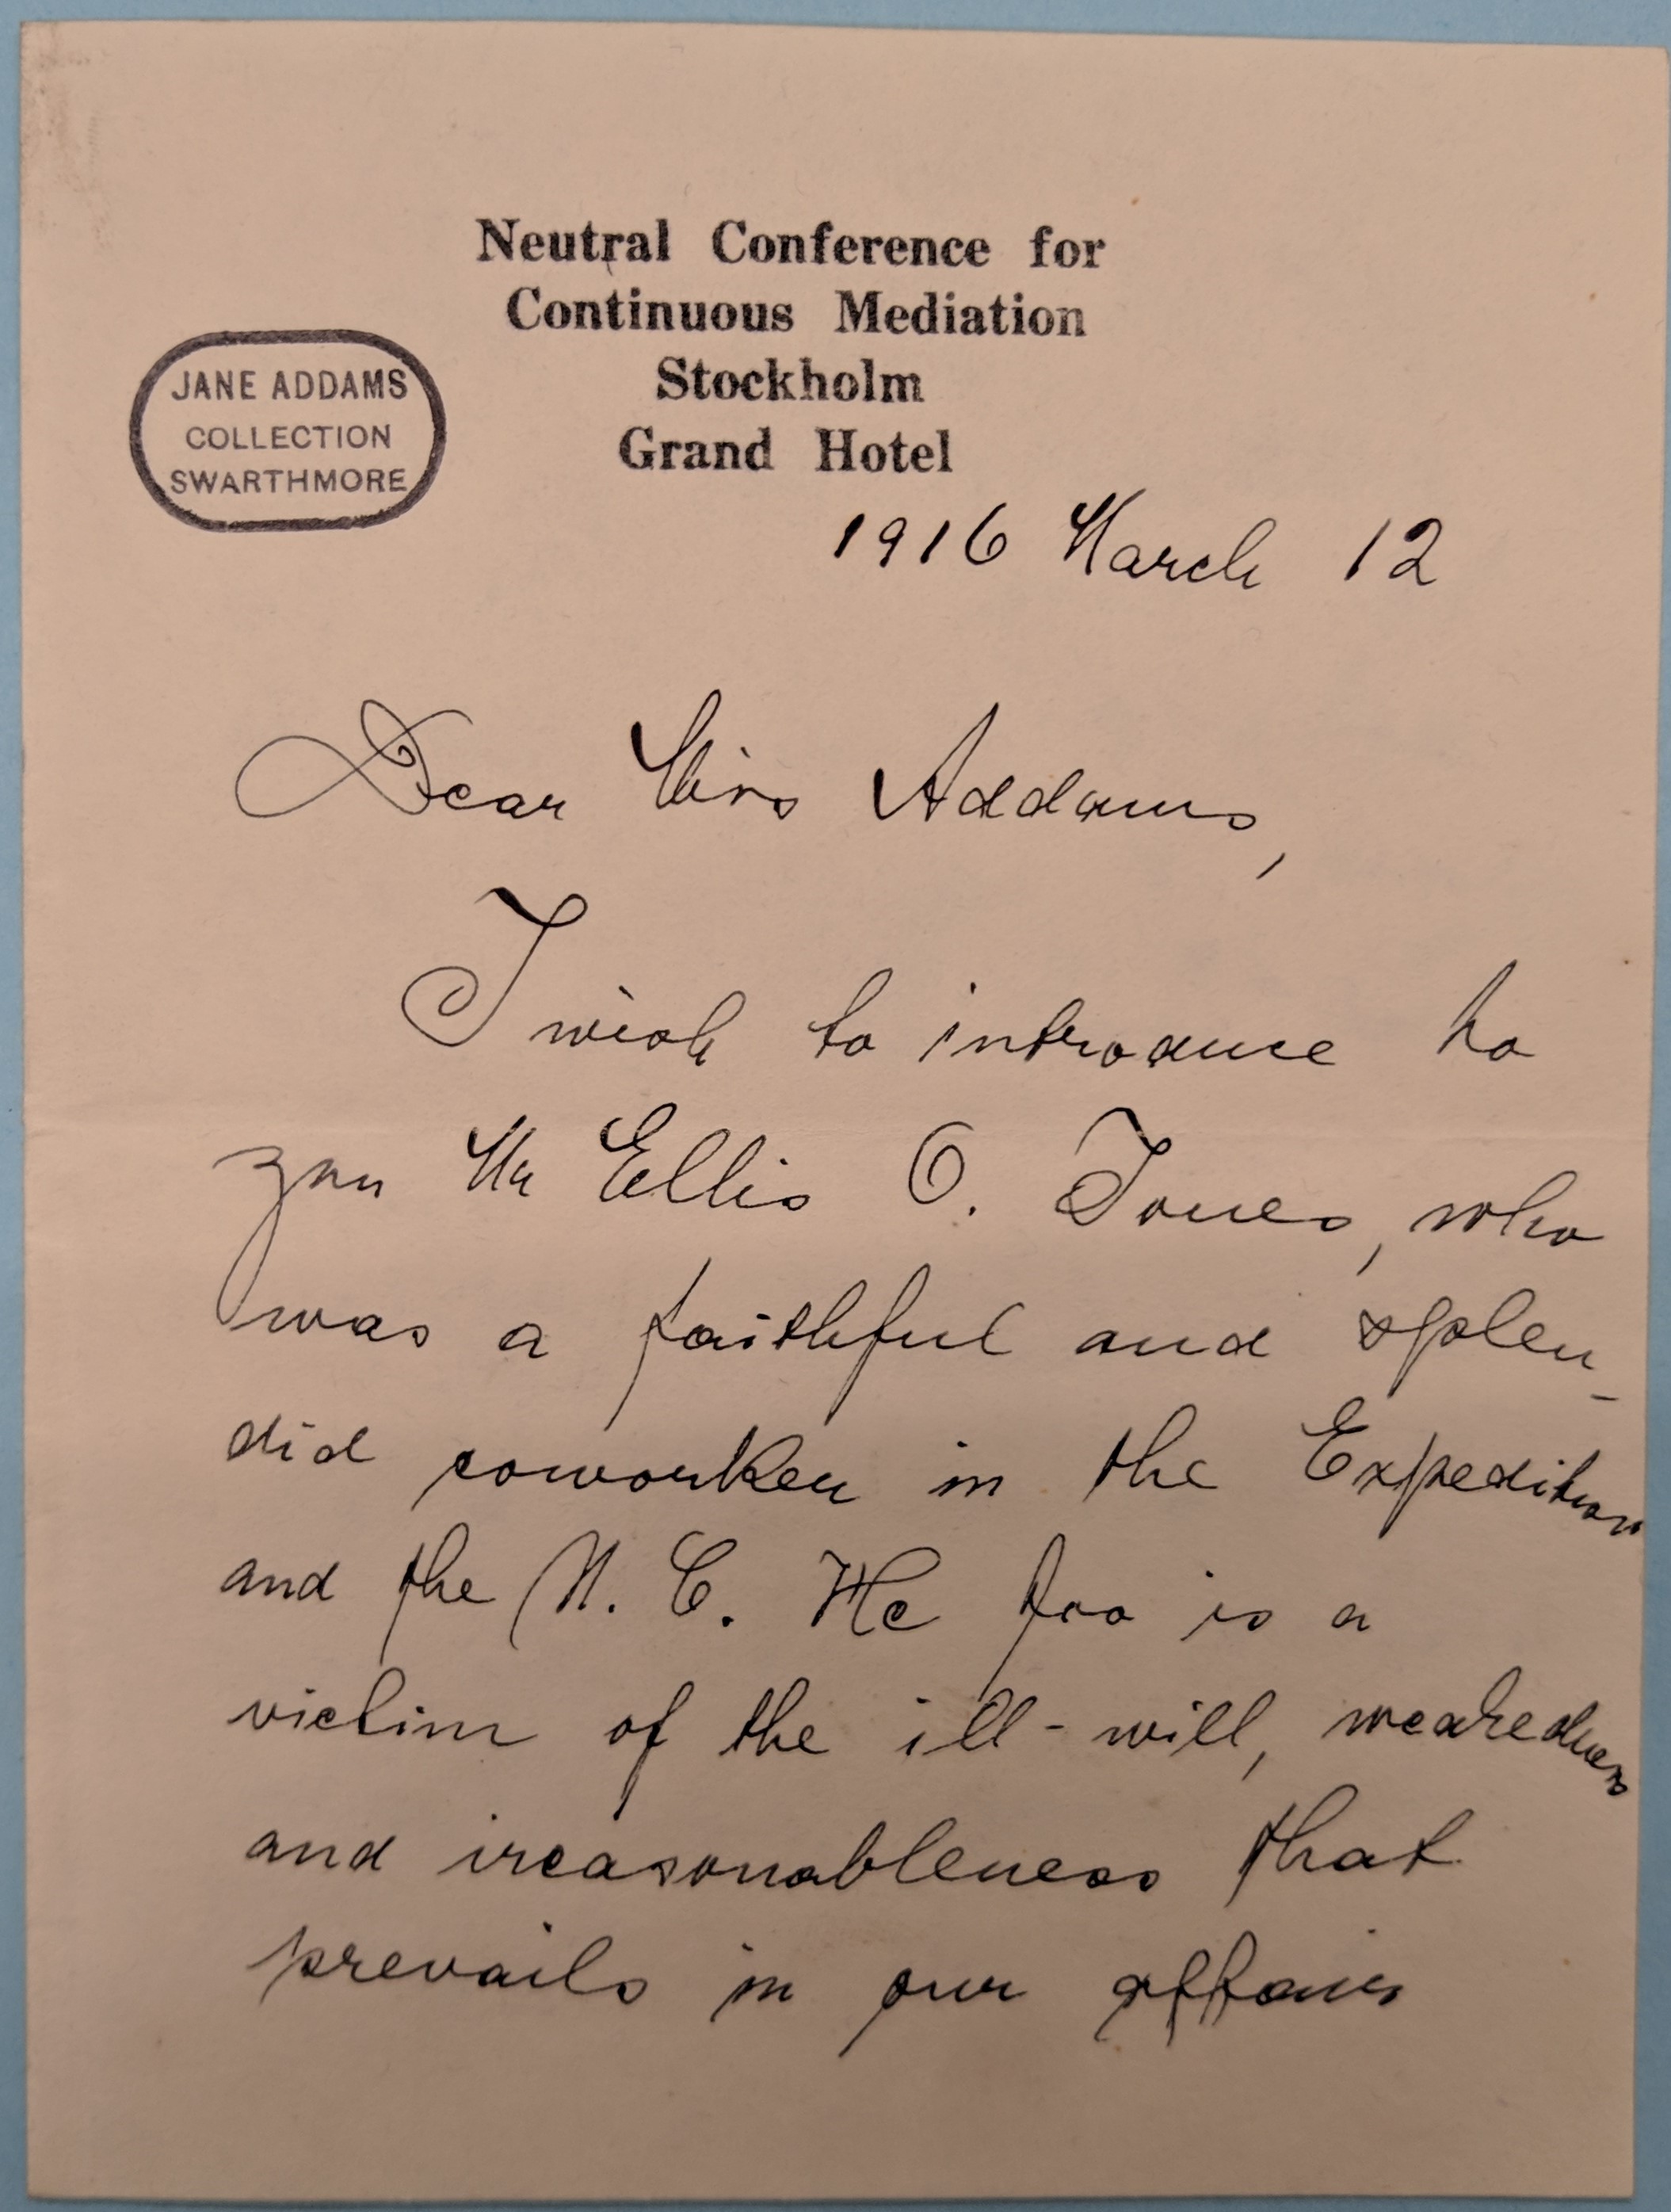 Neutral Conference for
Continuous Mediation
Stockholm
Grand Hotel
JANE ADDAMS
COLLECTION
SWARTHMORE
1916 March 12
Dear Miss Addams,
I wish to introduce to
you Mr Ellis O. Jones, who
was a faithful and splen-
did coworker in the Expedition
and the N. C. He too is a
victim of the ill-will,
and ireasonableness that
prevails in our affairs